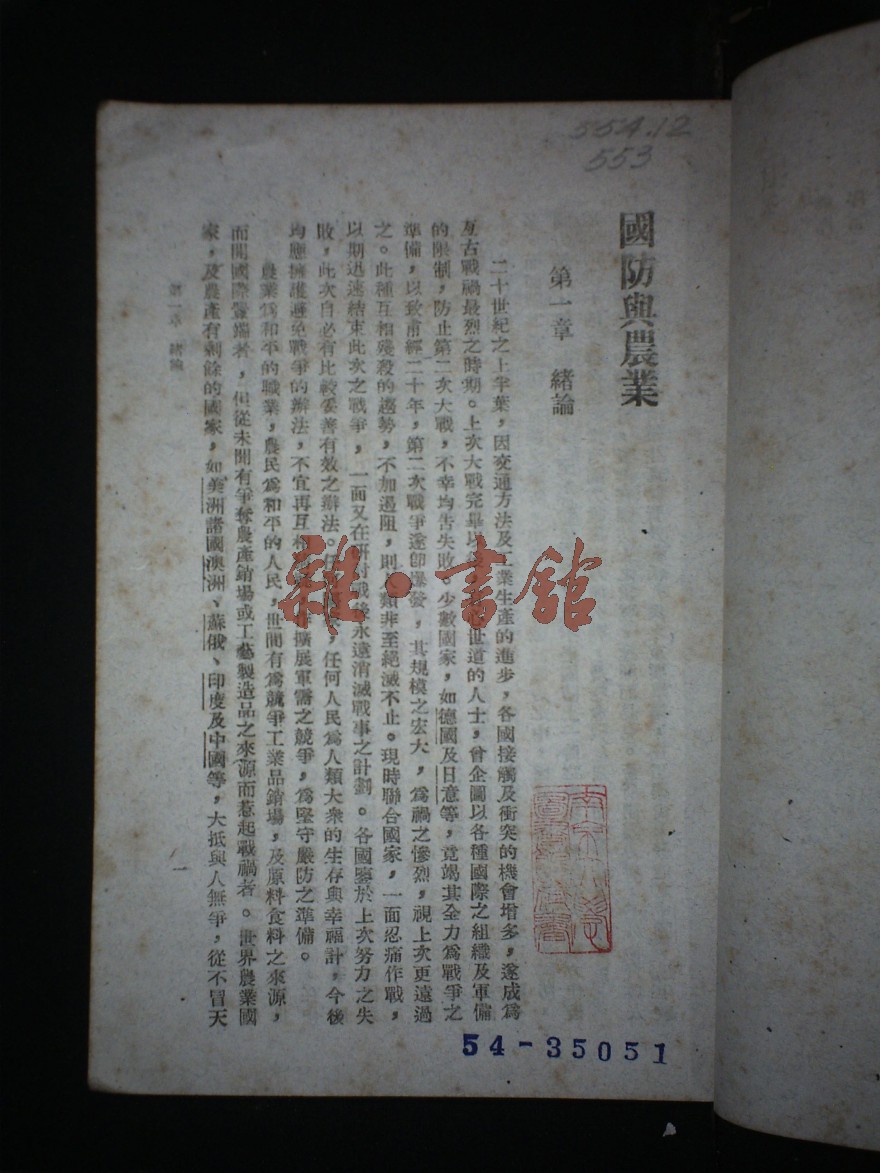 554.12
553
國防與農業
第一章　緒論
二十世紀之上半葉，因交通方法及工業生產的進步，各國接觸及衝突的機會增多，遂成爲
亙古戰禍最烈之時期。上次大戰完畢以後，世道的人士，曾企圖以各種國際之組織及軍備
的限制，防止第二次大戰，不幸均告失敗，少數國家，如德國及日意等，竟竭其全力爲戰爭之
準備，以致甫經二十年，第二次戰爭遂卽爆發，其規模之宏大，爲禍之慘烈，視上次更遠過
之。此種互相殘殺的趨勢，不加遏阻，則人類非至絕滅不止。現時聯合國家，一面忍痛作戰，
以期迅速結束此次之戰爭，一面又在研討戰後永遠消滅戰事之計劃。各國鑒於上次努力之失
敗，此次自必有比較妥善有效之辦法。任何國家，任何人民爲人類大衆的生存與幸福計，今後
均應擁護避免戰爭的辦法，不宜再互相擴展軍需之競爭，爲堅守嚴防之準備。
農業爲和平的職業，農民爲和平的人民，世間有爲競爭工業品銷場，及原料食料之來源，
而開國際釁端者，但從未聞有爭奪農產銷場或工藝製造品之來源而惹起戰禍者。世界農業國
家，及農產有剩餘的國家，如美洲諸國澳洲、蘇俄、印度及中國等，大抵與人無爭，從不冒天
第一章　緒論
一
雜·書館
54-35051